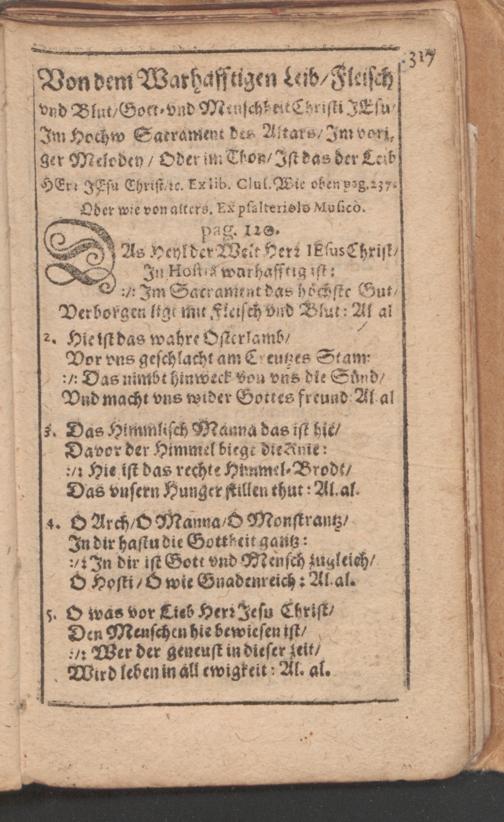 317
Von dem Warhafftigen Leib/Fleisch
vnd Blut/Gott-vnd Menschheit Christi JEsu/
Im Hochw Sacrament des Altars/Im vori-
ger Melodey / Oder im Thon/Ist das der Leib
HErr JEsu Christ/ꝛc. Ex lib. Clus. Wie oben pag. 237.
Oder wie von alters. Ex psalteriolo Musico.
pag. 120.
DAs Heyl der Welt Herr IEsus Christ/
In Hostia warhafftig ist:
:/: Im Sacrament das höchste Gut/
Verborgen ligt mit Fleisch vnd Blut: Al al
2. Hie ist das wahre Osterlamb/
Vor vns geschlacht am Creutzes Stam:
:/: Das nimbt hinweck von vns die Sünd/
Vnd macht vns wider Gottes freund: Al al
3. Das Himmlisch Manna das ist hie/
Davor der Himmel biegt die Knie:
:/: Hie ist das rechte Himmel-Brodt/
Das vnsern Hunger stillen thut: Al. al.
4. O Arch/O Manna/O Monstrantz/
In dir hastu die Gottheit gantz:
:/: In dir ist Gott vnd Mensch zugleich/
O Hosti/O wie Gnadenreich: Al. al.
5. O was vor Lieb Herr Jesu Christ/
Den Menschen hie bewiesen ist/
:/: Wer der geneust in dieser zeit/
Wird leben in all ewigkeit: Al. al.